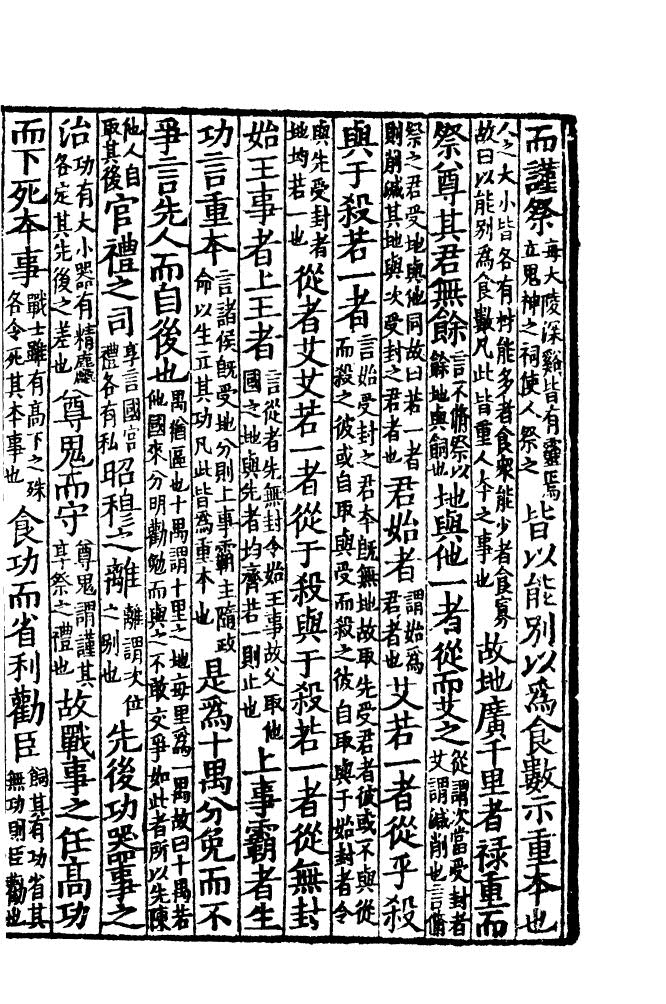 而謹祭每大陵深谿皆有靈焉立鬼神之祠使人祭之皆以能别以為食數示重本也
人之大小皆各有材能多者食衆能少者食寡故曰以能别為食數凡此皆重人本之事也故地廣千里者禄重而
祭尊其君無餘言不脩祭以餘地與餇也地與他一者從而艾之從謂次當受封者艾謂減削也言脩
祭之君受地與他同故曰若一者則削減其地與次受封之君者也君始者謂始為君者也艾若一者從乎殺
與于殺若一者言始受封之君本既無地故取先受君者彼或不與從而殺之彼或自取與受而殺之彼自取與于始封者令
與先受封者地均若一也從者艾艾若一者從于殺與于殺若一者從無封
始王事者上王者言從者先無封令始王事故父取他國之地與先者均齊若一則止也上事霸者生
功言重本言諸侯既受地分則上事霸主隨政命以生立其功凡此皆為重本也是為十禺分免而不
爭言先人而自後也禺猶區也十禺謂十里之地每里為一禺故曰十禺若他國來分明勸勉而與之不敢交爭如此者所以先陳
他人自取其後官禮之司享言國官禮各有私昭穆之離離謂次位之别也先後功器事之
治功有大小器有精麤各定其先後之差也尊鬼而守尊鬼謂謹其享祭之禮也故戰事之任高功
而下死本事戰士雖有高下之殊各令死其本事也食功而省利勸臣餇其有功省其無功則臣勸也